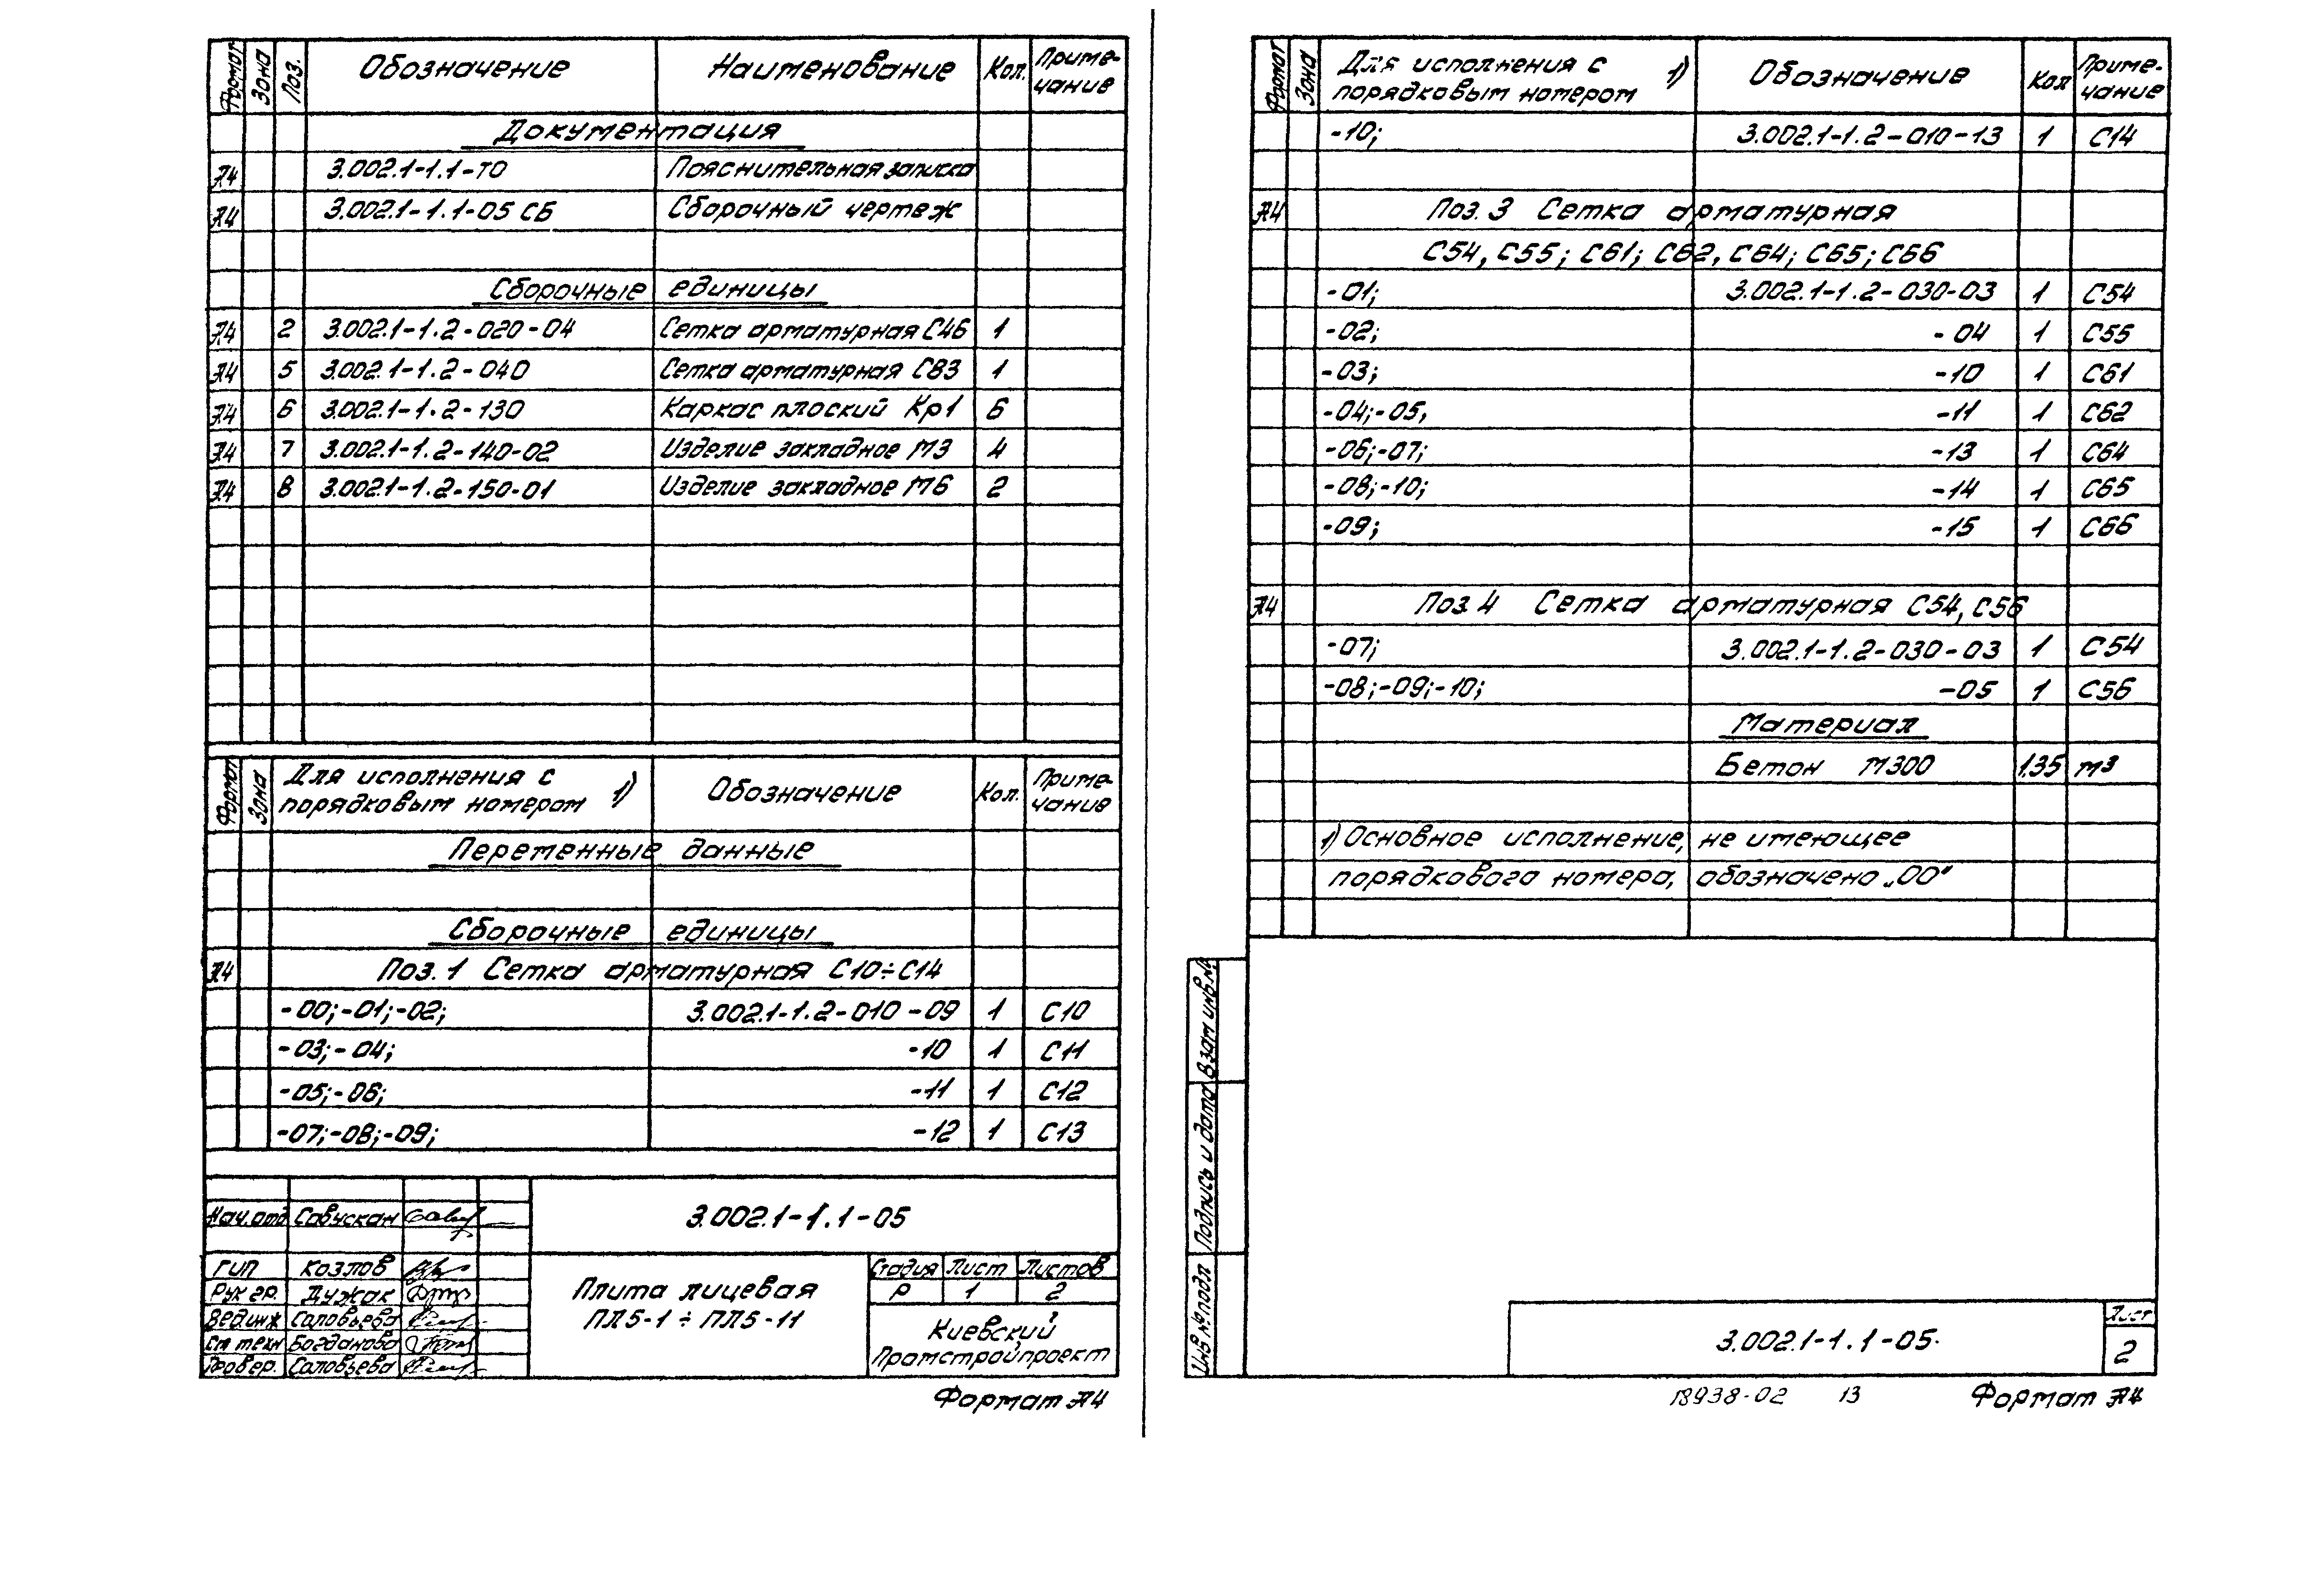 Формат Зона Поз. Обозначение Наименование Кол. Приме-чание
Документация
А4 3.002.1-1.1-ТО Пояснительная записка
А4 3.002.1-1.1-05 СБ Сборочный чертеж
Сборочные единицы
А4 2 3.002.1-1.2-020-04 Сетка арматурная С46 1
А4 5 3.002.1-1.2-040 Сетка арматурная С83 1
А4 6 3.002.1-1.2-130 Каркас плоский Кр1 6
А4 7 3.002.1-1.2-140-02 Изделие закладное М3 4
А4 8 3.002.1-1.2-150-01 Изделие закладное М6 2
Формат Зона Для исполнения с порядковым номером 1) Обозначение Кол. Приме-чание
Переменные данные
Сборочные единицы
А4 Поз. 1 Сетка арматурная С10÷С14
-00;-01;-02; 3.002.1-1.2-010-09 1 С10
-03;-04; -10 1 С11
-05;-06; -11 1 С12
-07;-08;-09; -12 1 С13
Нач.отд Савускан
3.002.1-1.1-05
ГИП Козлов
Рук гр. Дужак
Вед инж Соловьева
Ст техн Богданова
Провер. Соловьева
Плита лицевая
ПЛ5-1 ÷ ПЛ5-11
Стадия Лист Листов
Р 1 2
Киевский
Промстройпроект
Формат А4
Формат Зона Для исполнения с порядковым номером 1) Обозначение Кол Приме-чание
-10; 3.002.1-1.2-010-13 1 С14
А4 Поз. 3 Сетка арматурная
С54, С55; С61; С62, С64; С65; С66
-01; 3.002.1-1.2-030-03 1 С54
-02; -04 1 С55
-03; -10 1 С61
-04;-05, -11 1 С62
-06;-07; -13 1 С64
-08;-10; -14 1 С65
-09; -15 1 С66
А4 Поз. 4 Сетка арматурная С54, С56
-07; 3.002.1-1.2-030-03 1 С54
-08;-09;-10; -05 1 С56
Материал
Бетон М300 1.35 м3
1) Основное исполнение, не имеющее
порядкового номера, обозначено „00"
Взам инв.№
Подпись и дата
Инв №подл
3.002.1-1.1-05.
Лист
2
18938-02 13 Формат А4